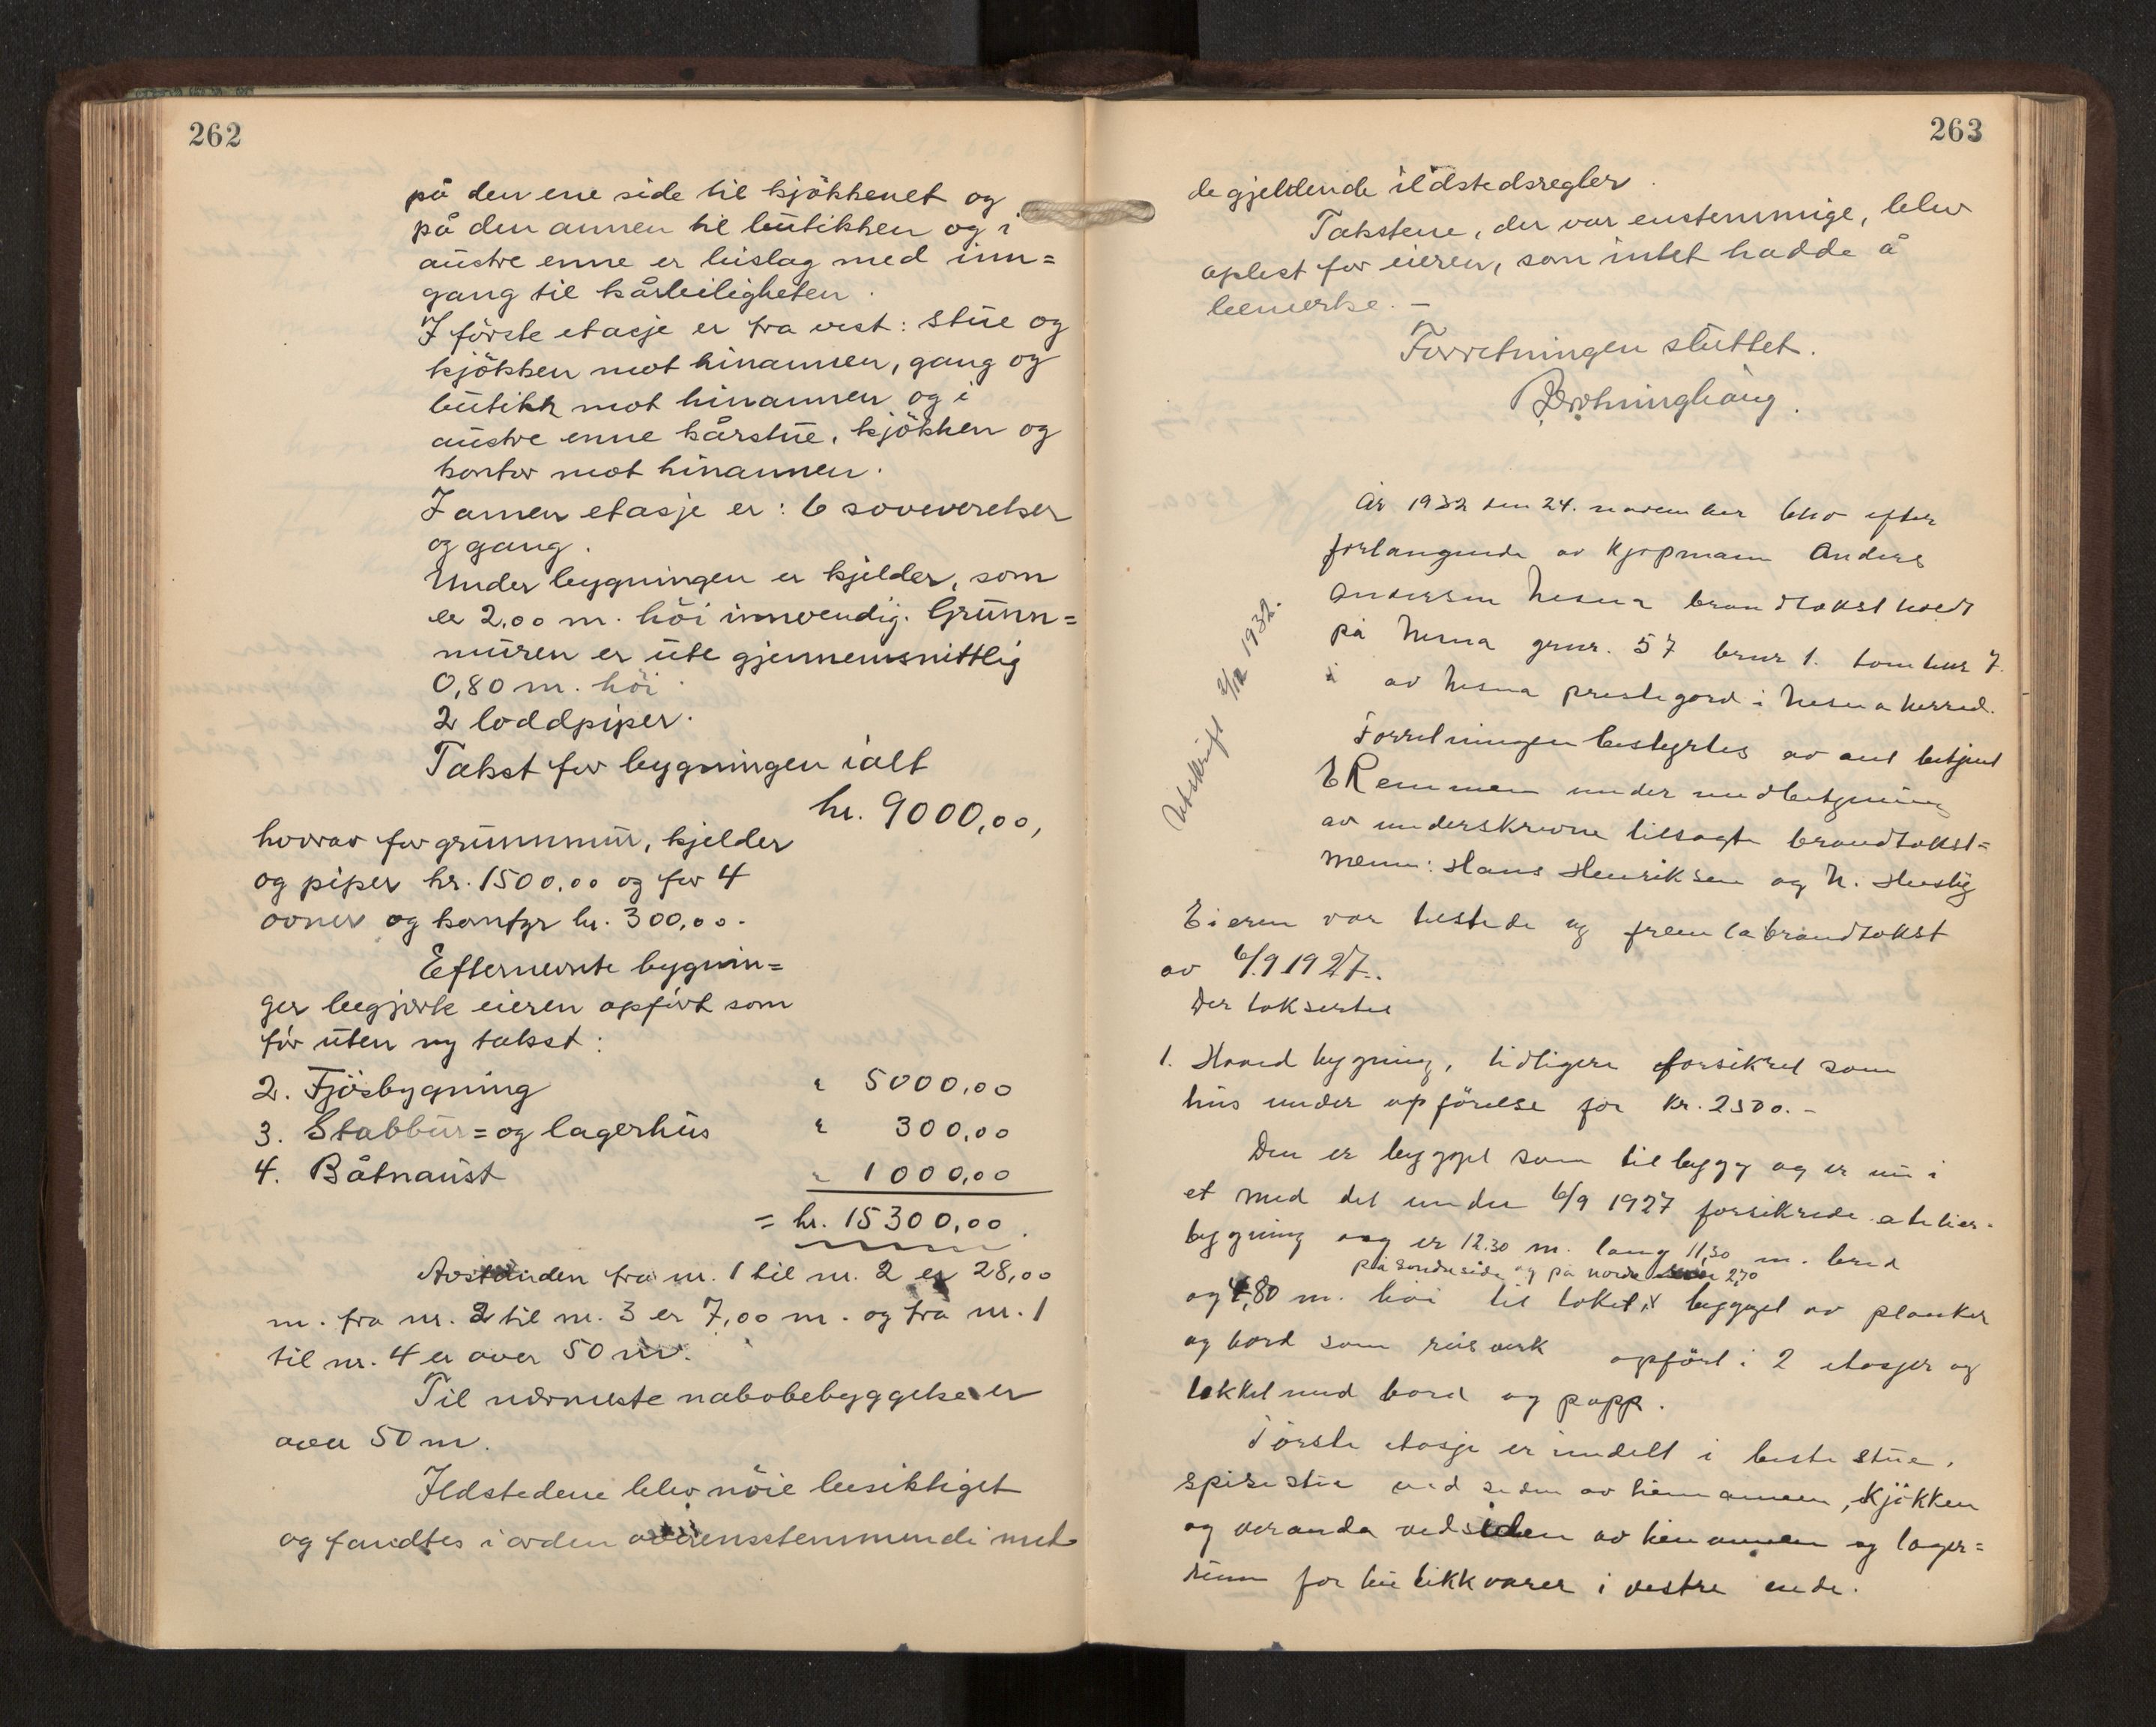 262
på den ene side til kjökkenet og
på den annen til butikken og i
austre enne er bislag med inn=
gang til kårleiligheten.
I förste etasje er fra vest: stue og
kjökken mot hinannen, gang og
butikk mot hinannen og i
austre enne kårstue, kjökken og
kontor mot hinannen.
I annen etasje er: 6 soveverelser
og gang.
Under bygningen er kjelder, som
er 2,00 m. höi innvendig. Grunn=
muren er ute gjennemsnittlig
0,80 m. höi
2 loddpiper.
Takst for bygningen ialt
kr. 9000,00,
hvorav for grunnmur, kjelder
og piper kr. 1500,00 og for 4
ovner og komfyr kr. 300,00.
Efternevnte bygnin=
ger begjærte eieren opfört som
för uten ny takst:
2. Fjösbygning " 5000,00
3. Stabbur= og lagerhus " 300,00
4. Båtnaust " 1000,00
= kr. 15300,00.
Avstanden fra nr. 1 til nr. 2 er 28,00
m. fra nr. 2 til nr. 3 er 7,00 m. og fra nr. 1
til nr. 4 er over 50 m.
Til nærmeste nabobebyggelse er
over 50 m.
Ildstedene blev nöie besiktiget
og fandtes i orden overensstemmende med
263
de gjeldende ildstedsregler.
Takstene, der var enstemmige, blev
oplest for eieren, som intet hadde å
bemerke. –
Forretningen sluttet.
Utskrift 2/12 1932.
År 1932 den 24. november blev efter
forlangende av kjøpmann Anders
Andersen Nesna brandtakst holdt
på Nesna grnr. 57 brnr 1. tomtenr 7.
i av Nesna prestegord i Nesna herred.
Forretningen bestyrtes av aut betjent
E Remmen under medbetjening
av underskrevne tilsagte brandtakst=
menn: Hans Henriksen og N. Husby
Eieren var tilstede og fremla brandtakst
av 6/9 1927.
Der taksertes
1. Hovedbygning, tidligere forsikret som
hus under opförelse for kr. 2500.-
Den er bygget som tilbygg og er nu i
et med det under 6/9 1927 forsikrede atelier-
bygning og er 12.30 m. lang 11,30 m. bred
på söndre side og på nordre 2,70
og 4,80 m. höi til taket, x bygget av planker
og bord som reisverk opfört i 2 etasjer og
tekket med bord og papp.
Förste etasje er inndelt i beste stue,
spisestue ved siden av hinannen, kjökken
og veranda ved siden av hinannen og lager=
rum for butikkvarer i vestre ende.